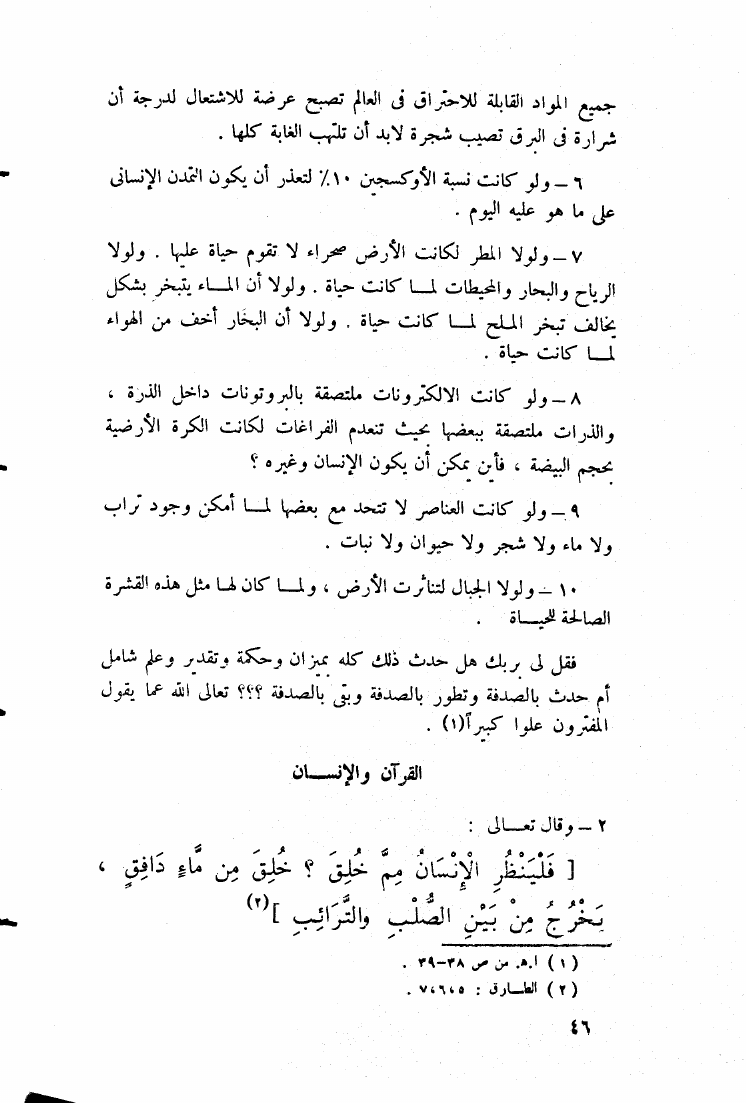 جميع المواد القابلة للاحتراق فى العالم تصبح عرضة للاشتعال لدرجة أن
شرارة فى البرق تصيب شجرة لابد أن تلتهب الغابة كلها .
٦ – ولو كانت نسبة الأوكسجين ١٠٪ لتعذر أن يكون التمدن الإنسانى
على ما هو عليه اليوم .
٧ – ولولا المطر لكانت الأرض صحراء لا تقوم حياة عليها . ولولا
الرياح والبحار والمحيطات لمـا كانت حياة . ولولا أن المـاء يتبخر بشكل
يخالف تبخر الملح لمـا كانت حياة . ولولا أن البخار أخف من الهواء
لمـا كانت حياة .
٨ – ولو كانت الالكترونات ملتصقة بالبروتونات داخل الذرة ،
والذرات ملتصقة ببعضها بحيث تنعدم الفراغات لكانت الكرة الأرضية
بحجم البيضة ، فأين يمكن أن يكون الإنسان وغيره ؟
٩ – ولو كانت العناصر لا تتحد مع بعضها لمـا أمكن وجود تراب
ولا ماء ولا شجر ولا حيوان ولا نبات .
١٠ – ولولا الجبال لتناثرت الأرض ، ولمـا كان لها مثل هذه القشرة
الصالحة للحيـاة .
فقل لى بربك هل حدث ذلك كله بميزان وحكمة وتقدير وعلم شامل
أم حدث بالصدفة وتطور بالصدفة وبقى بالصدفة ؟؟؟ تعالى الله عما يقول
المفترون علوا كبيراً(١) .
القرآن والإنسـان
٢ – وقال تعـالى :
[ فَلْيَنْظُرِ الْإِنْسَانُ مِمَّ خُلِقَ ؟ خُلِقَ مِن مَّاءٍ دَافِقٍ ،
يَخْرُجُ مِنْ بَيْنِ الصُّلْبِ والتَّرَائِبِ ](٢)
( ١ ) ا.ه. من ص ٣٨–٣٩ .
( ٢ ) الطـارق : ٥،٦،٧ .
٤٦